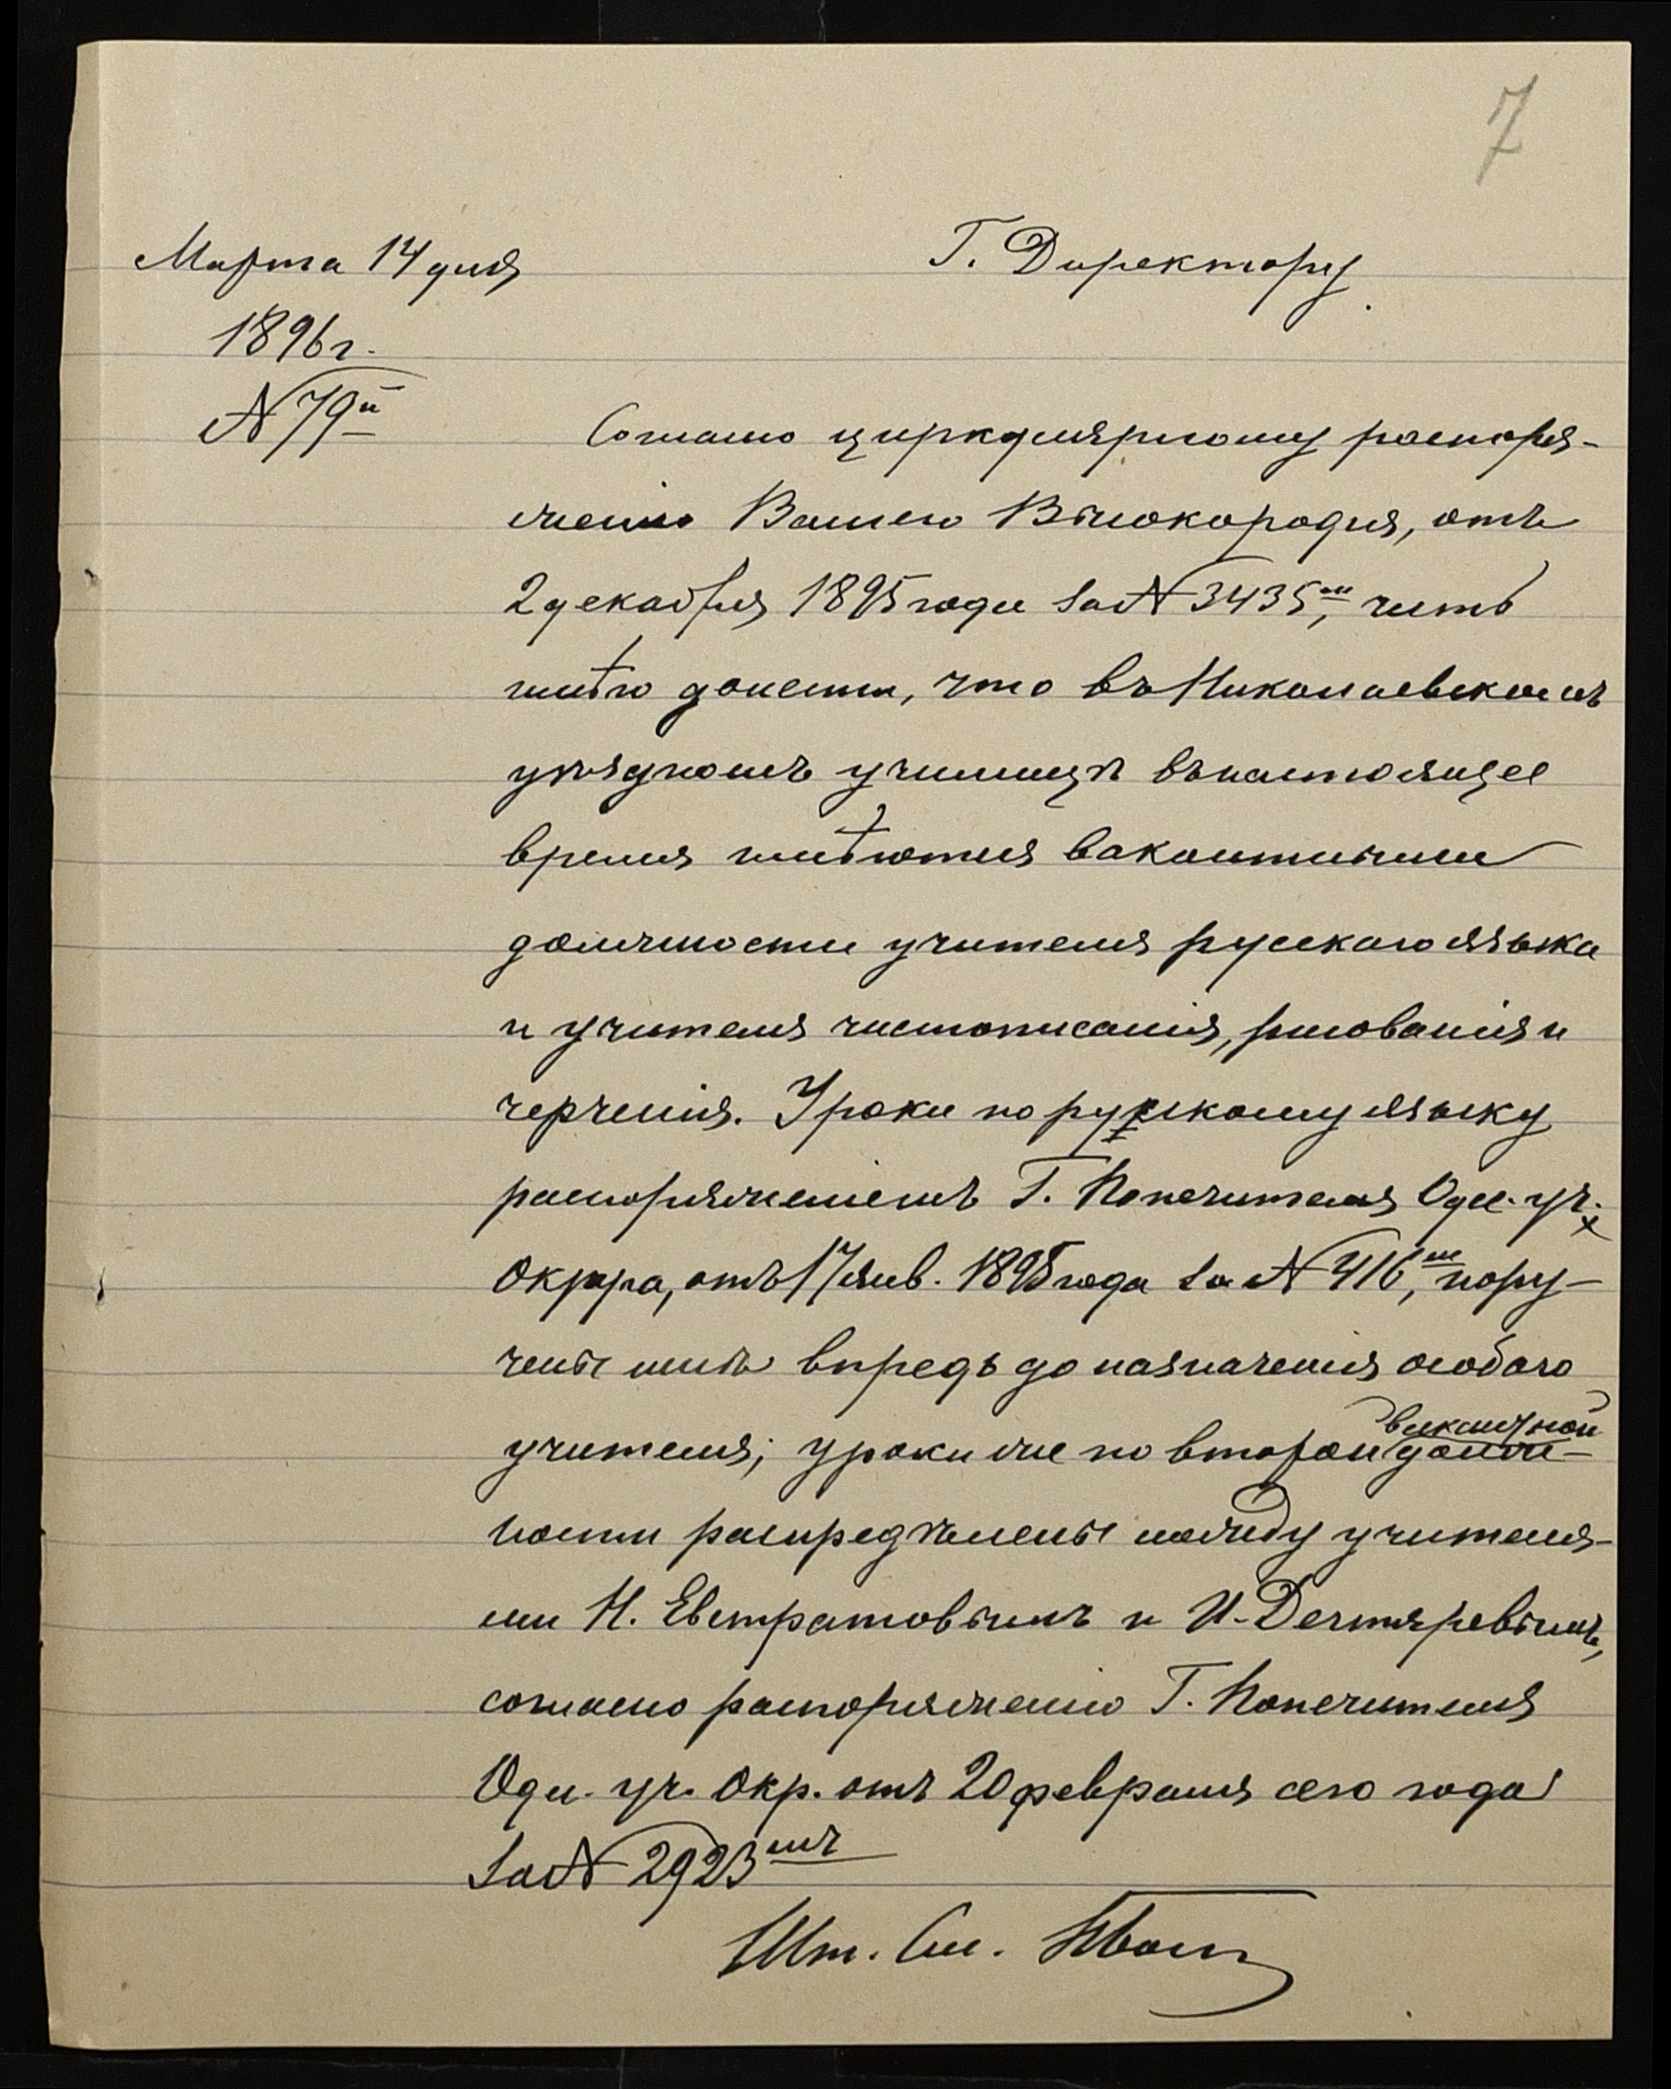 7
Марта 14 дня
1896 г.
№ 79й
Г. Директору
Согласно циркулярному распоря-
женію Вашего Высокородія, отъ
2 декабря 1895 года за № 3435м, честь
имѣю донести, что въ Николаевскомъ
уѣздномъ училищѣ въ настоящее
время имѣются вакантными
должности учителя русскаго языка
и учителя чистописанія, рисованія и
черченія. Уроки по русскому языку
распоряженіемъ Г. Попечителя Одес. уч.
Округа, отъ 17 янв. 1895 года за № 416м, пору-
чены мнѣ впредь до назначенія особаго
учителя; уроки же по второй долж-
ности распредѣлены между учителя-
ми Н. Евстратовымъ и И. Дегтяревымъ,
согласно распоряженію Г. Попечителя
Одес. уч. Окр. отъ 20 февраля сего года
за № 2923мъ
Шт. См.